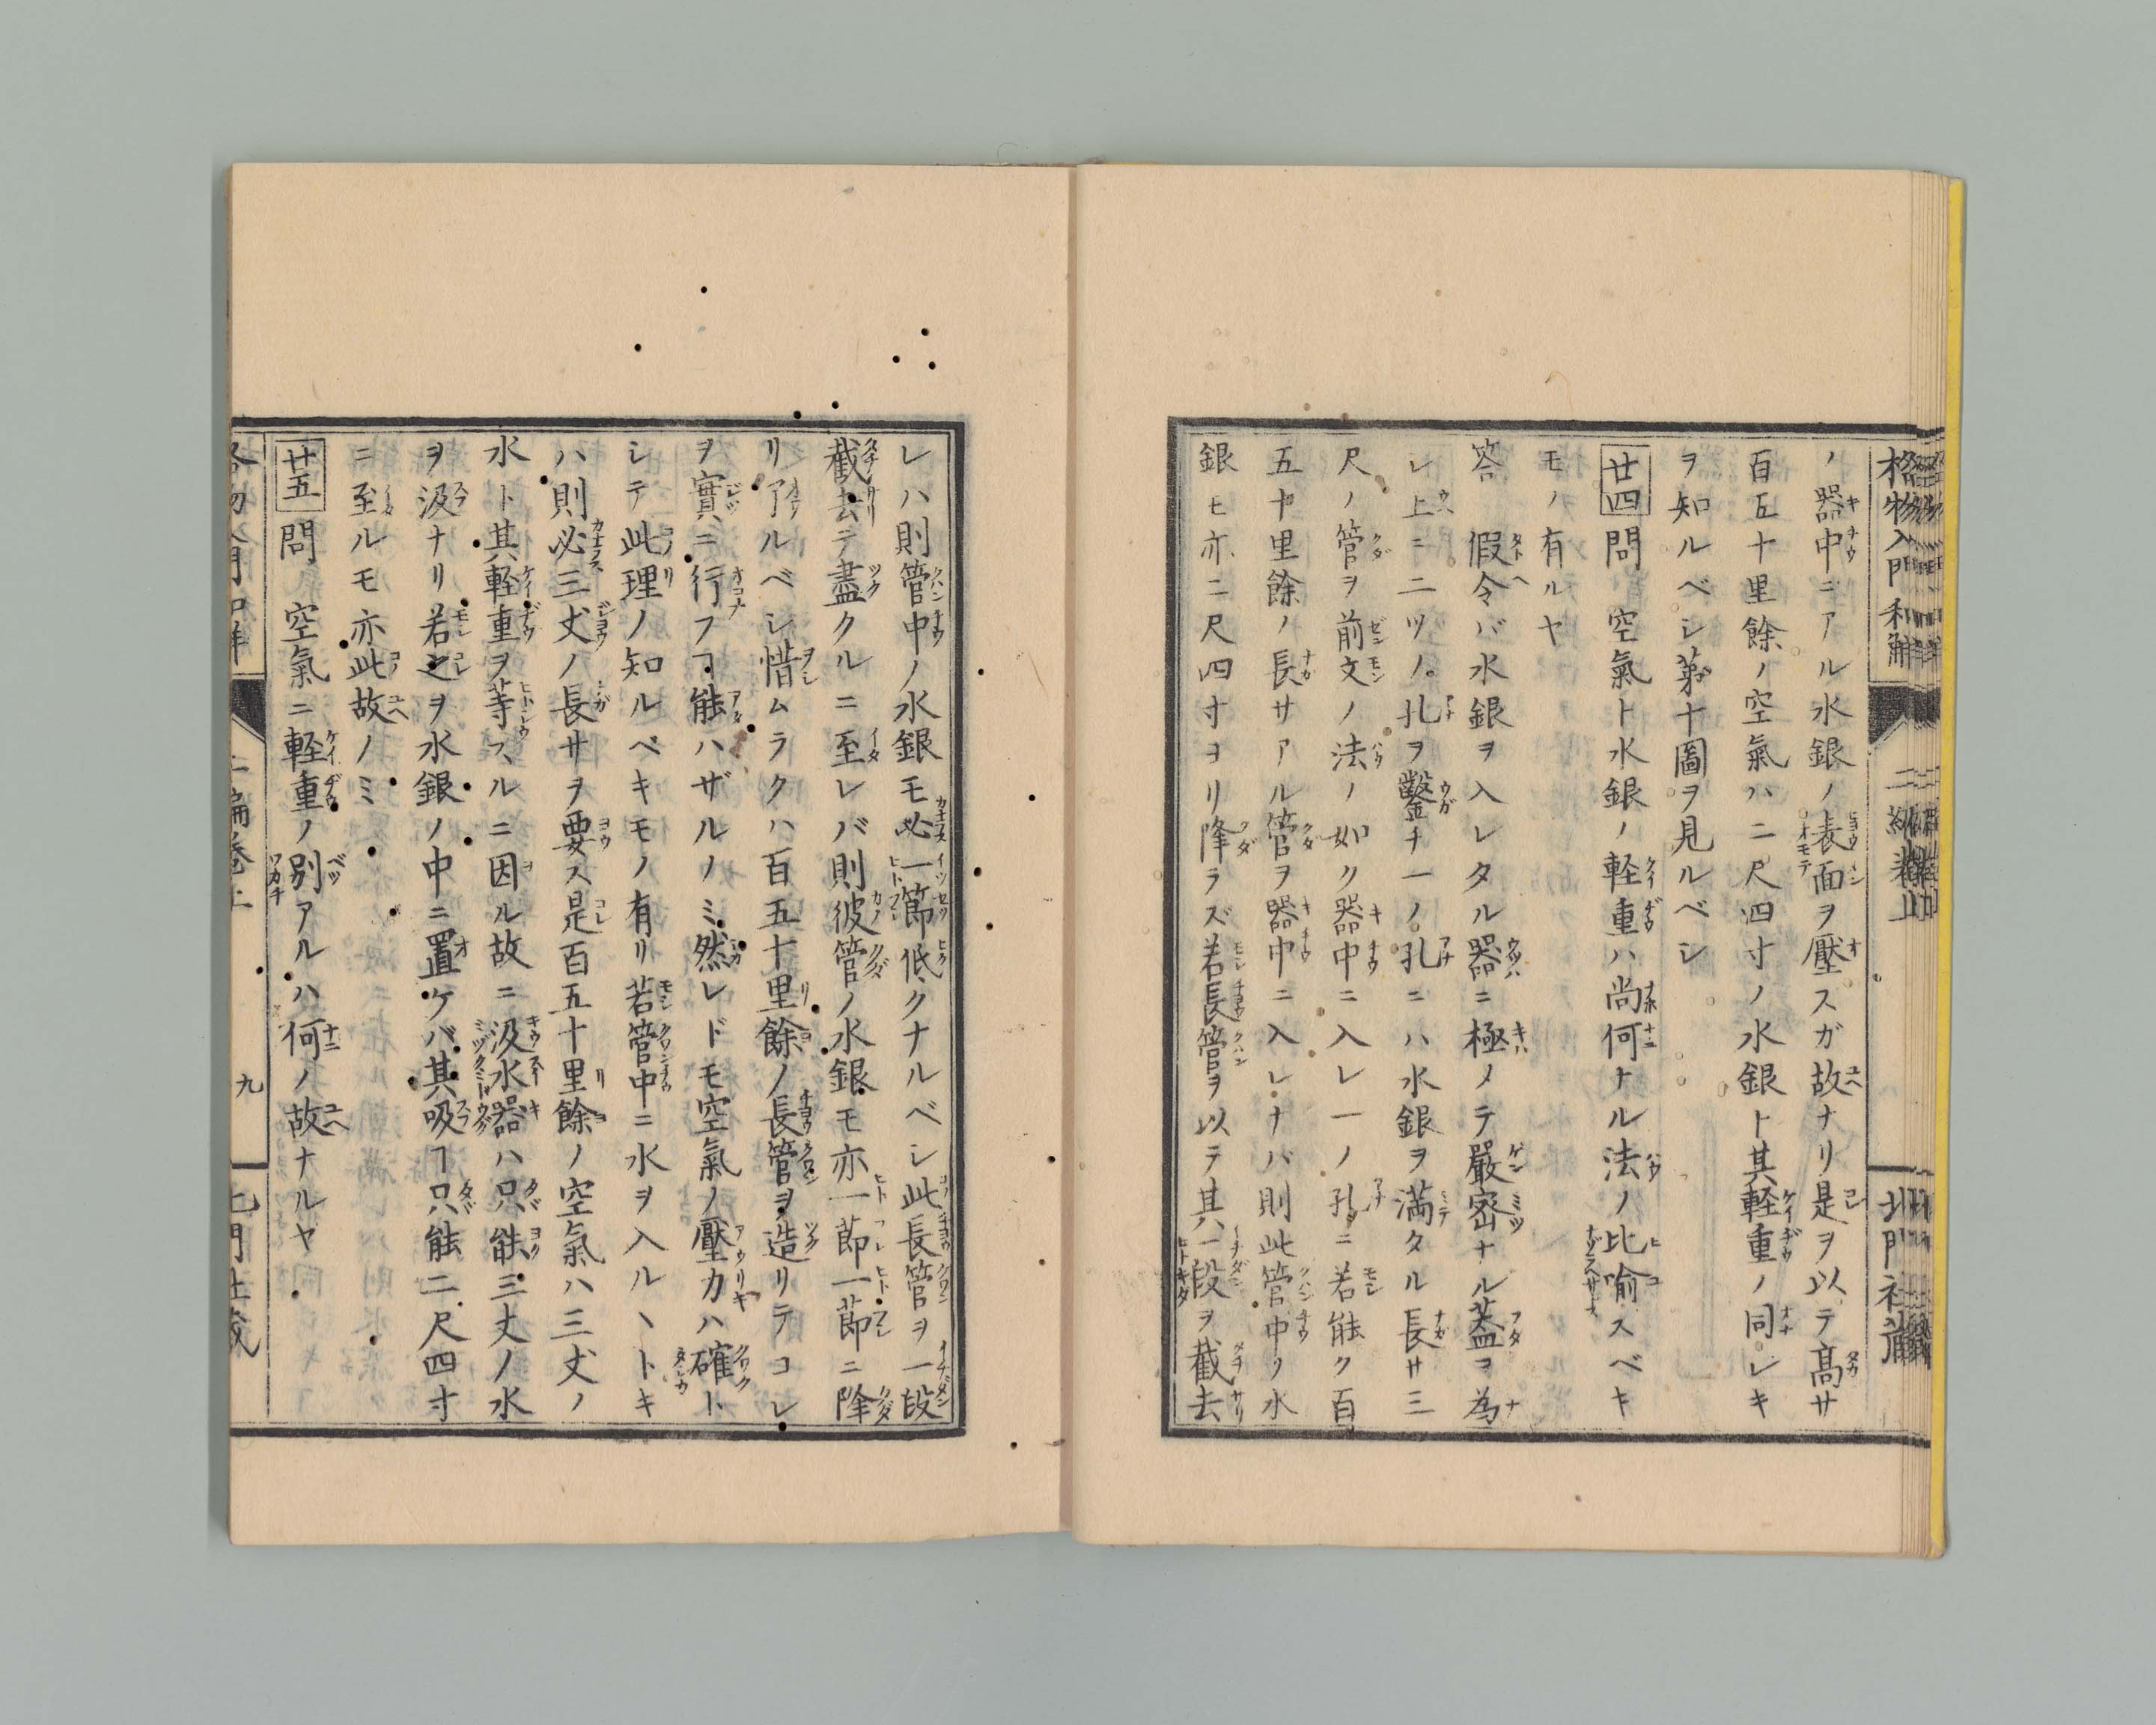 格物入門和解
二編卷上
北門社藏
ノ器中ニアル水銀ノ表面ヲ壓スガ故ナリ是ヲ以テ高サ
百五十里餘ノ空氣ハ二尺四寸ノ水銀ト其軽重ノ同シキ
ヲ知ルベシ第十圖ヲ見ルベシ
廿四問 空氣ト水銀ノ軽重ハ尚何ナル法ノ比喻スベキ
モノ有ルヤ
答 假令バ水銀ヲ入レタル器ニ極メテ嚴密ナル葢ヲ為
シ上ニ二ツノ孔ヲ鑿チ一ノ孔ニハ水銀ヲ満タル長サ三
尺ノ管ヲ前文ノ法ノ如ク器中ニ入レ一ノ孔ニ若能ク百
五十里餘ノ長サアル管ヲ器中ニ入レナバ則此管中ノ水
銀モ亦二尺四寸ヨリ降ラズ若長管ヲ以テ其一段ヲ截去
レハ則管中ノ水銀モ必一節低クナルベシ此長管ヲ一段
截去テ盡クルニ至レバ則彼管ノ水銀モ亦一節一節ニ降
リ了ルベシ惜ムラクハ百五十里餘ノ長管ヲ造リテコレ
ヲ實ニ行フヿ能ハザルノミ然レドモ空氣ノ壓力ハ確ト
シテ此理ノ知ルベキモノ有リ若管中ニ水ヲ入ルヽトキ
ハ則必三丈ノ長サヲ要ス是百五十里餘ノ空氣ハ三丈ノ
水ト其軽重ヲ等フスルニ因ル故ニ汲水器ハ只能三丈ノ水
ヲ汲ナリ若之ヲ水銀ノ中ニ置ケバ其吸ヿ只能二尺四寸
ニ至ルモ亦此故ノミ
廿五問 空氣ニ軽重ノ別アルハ何ノ故ナルヤ
九